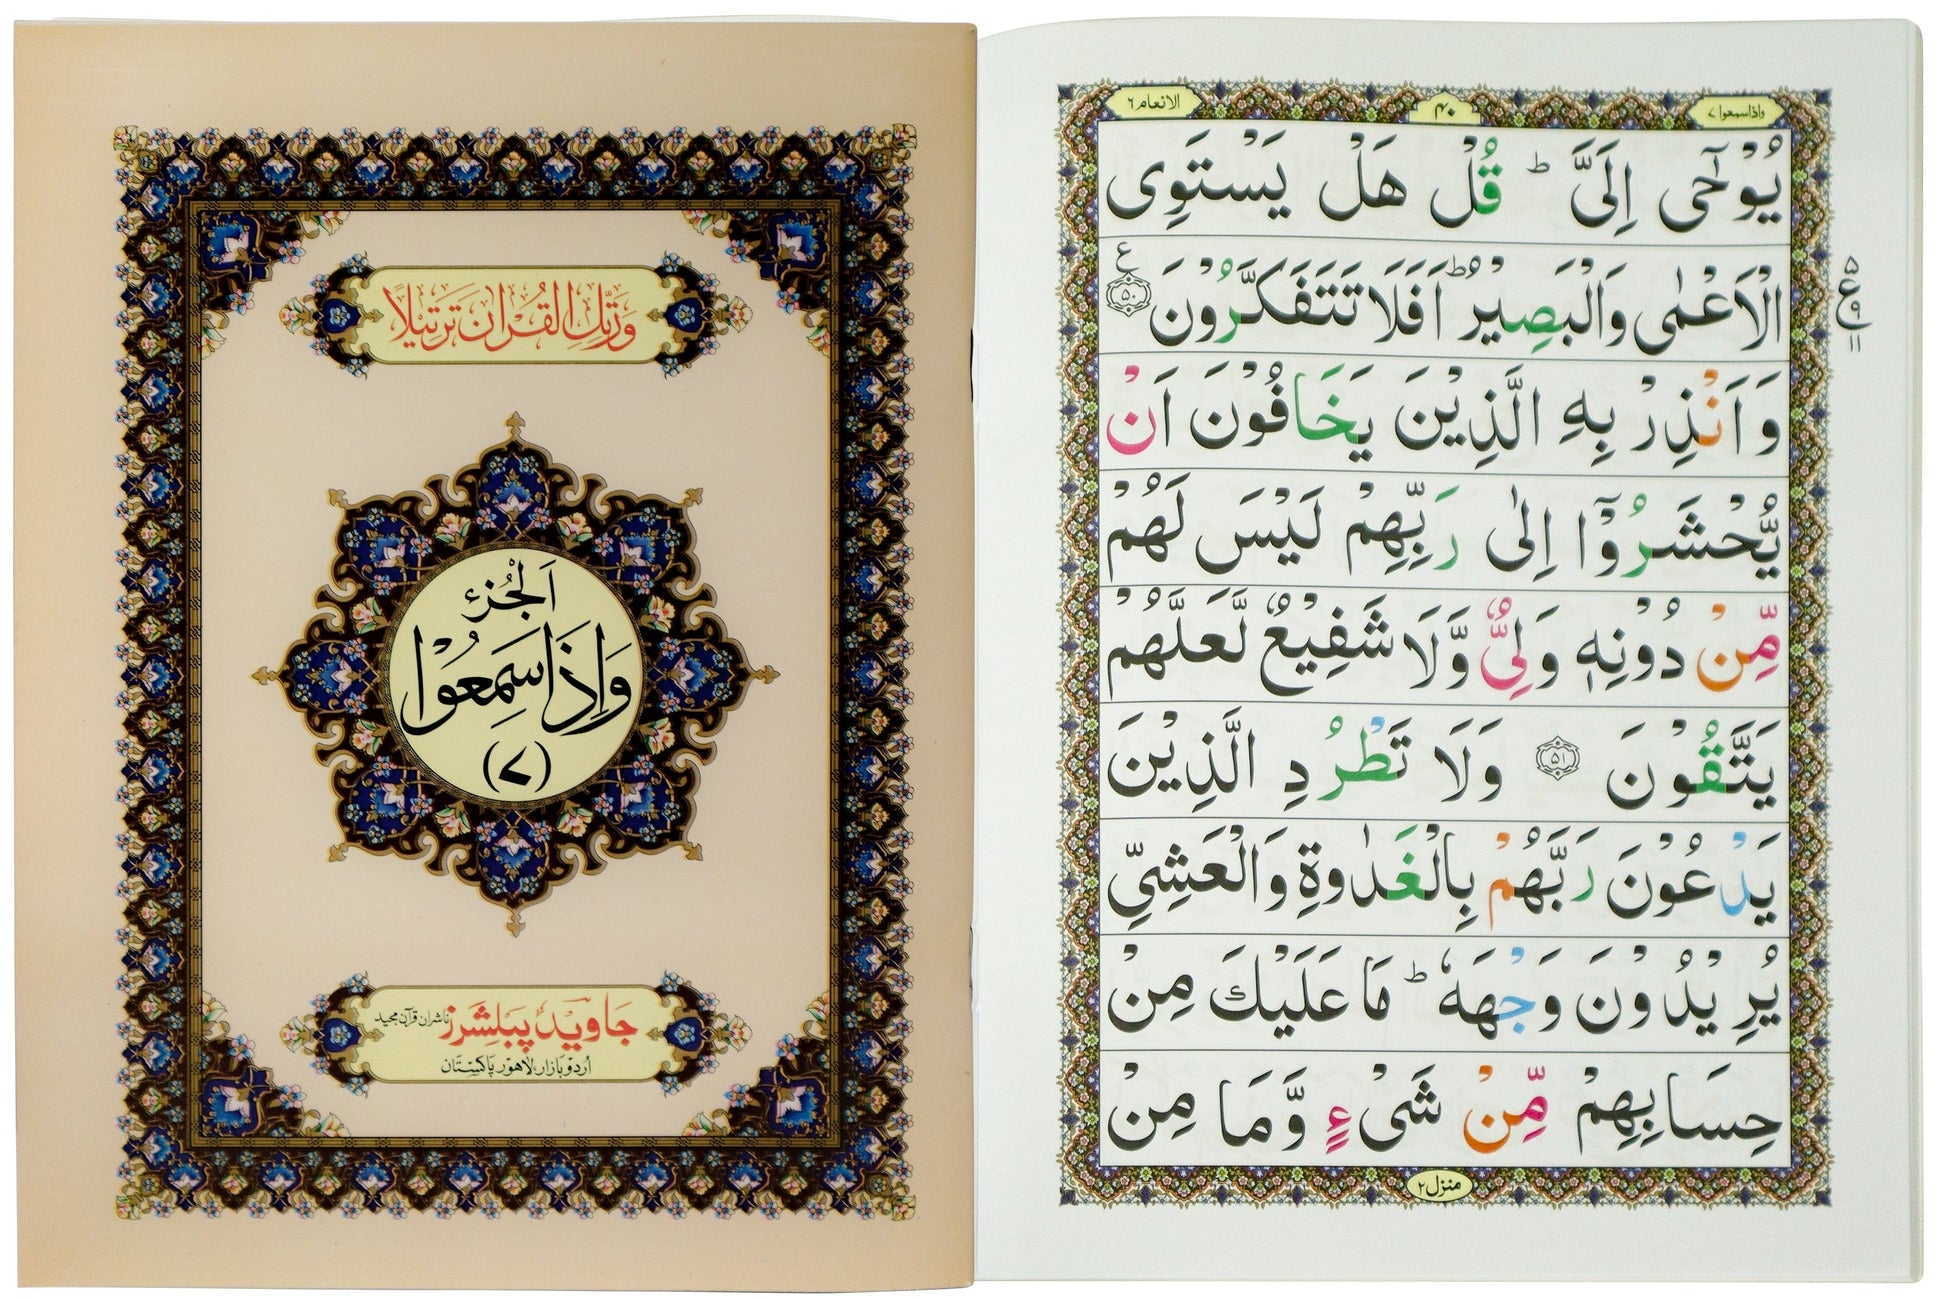 وَرَتِّلِ الْقُرْاٰنَ تَرْتِيْلًا
اَلْجُزْءُ
وَاِذَا سَمِعُوْا
(۷)
جاوید پبلشرز ناشران قرآن مجید
اُردو بازار، لاھور پاکستان
الانعام ٦
۴۰
واذاسمعوا ۷
يُوْحٰٓى اِلَىَّ ؕ قُلْ هَلْ يَسْتَوِى
الْاَعْمٰى وَالْبَصِيْرُ ؕ اَفَلَا تَتَفَكَّرُوْنَ ﴿۵۰﴾ ع
۵
ع ۹
۱۱
وَاَنْذِرْ بِهِ الَّذِيْنَ يَخَافُوْنَ اَنْ
يُّحْشَرُوْٓا اِلٰى رَبِّهِمْ لَيْسَ لَهُمْ
مِّنْ دُوْنِهٖ وَلِىٌّ وَّلَا شَفِيْعٌ لَّعَلَّهُمْ
يَتَّقُوْنَ ﴿۵۱﴾ وَلَا تَطْرُدِ الَّذِيْنَ
يَدْعُوْنَ رَبَّهُمْ بِالْغَدٰوةِ وَالْعَشِىِّ
يُرِيْدُوْنَ وَجْهَهٗ ؕ مَا عَلَيْكَ مِنْ
حِسَابِهِمْ مِّنْ شَىْءٍ وَّمَا مِنْ
منزل ۲